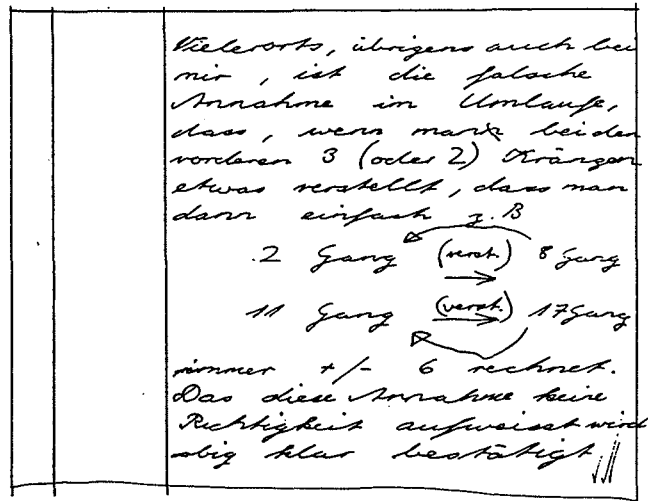 Vielerorts, übrigens auch bei
mir, ist die falsche
Annahme im Umlaufe,
dass, wenn man bei den
vorderen 3 (oder 2) Kränzen
etwas verstellt, dass man
dann einfach z.B
2 Gang (verst.) 8 Gang
11 Gang (verst.) 17 Gang
immer +/- 6 rechnet.
Das diese Annahme keine
Richtigkeit aufweisst wird
obig klar bestätigt